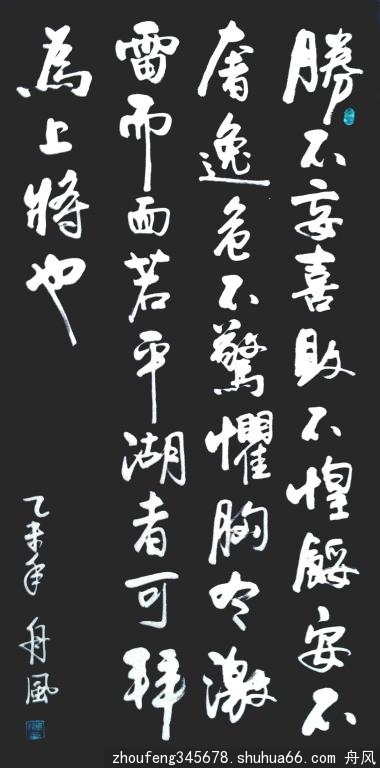 勝不妄喜敗不惶餒安不
奢逸危不驚懼胸有激
雷而面若平湖者可拜
為上將也
乙未年 舟風
zhoufeng345678.shuhua66.com 舟风